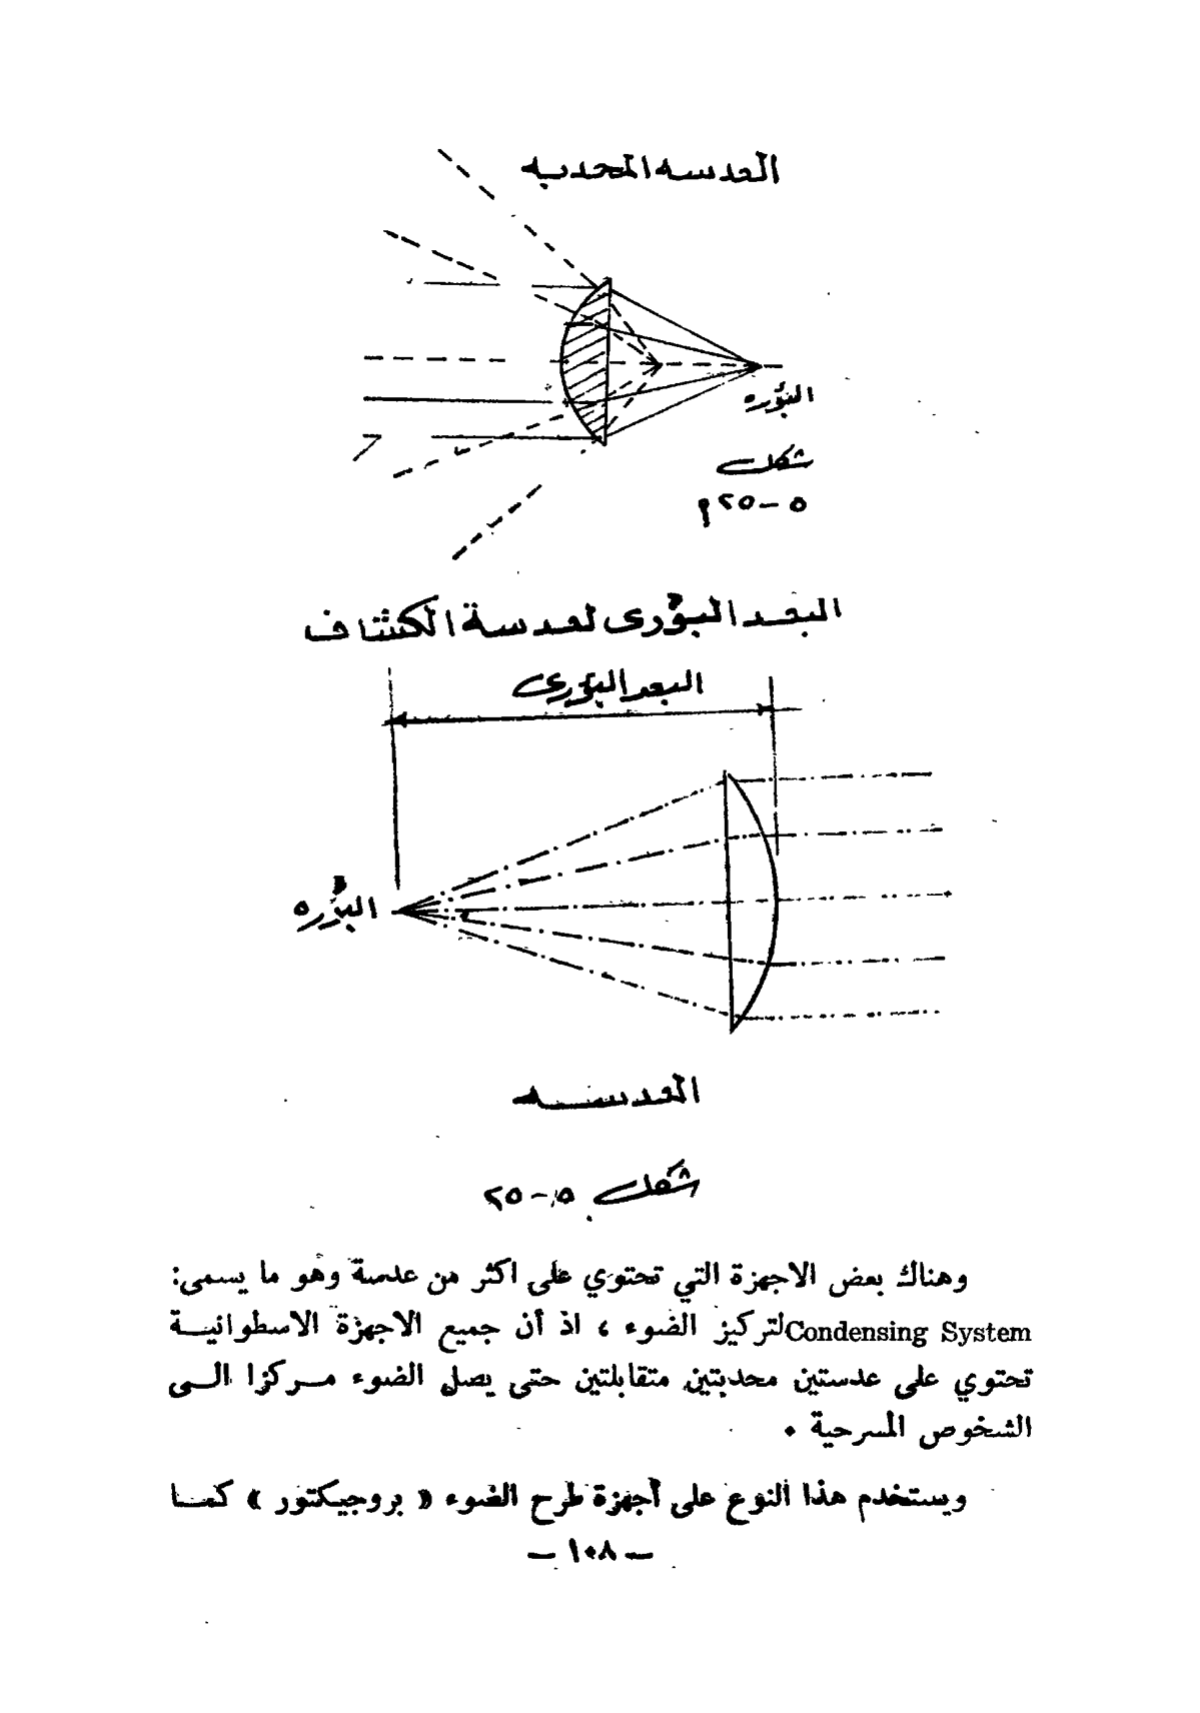 العدسه المحدبه
البؤره
شكل
٥ – ٢٥ م
البعد البؤرى لعدسة الكشاف
البعد البؤرى
البؤره
العدسه
شكل ٥ – ٢٥
وهناك بعض الاجهزة التي تحتوي على اكثر من عدسة وهو ما يسمى:
Condensing System لتركيز الضوء ، اذ أن جميع الاجهزة الاسطوانية
تحتوي على عدستين محدبتين متقابلتين حتى يصل الضوء مركزا الى
الشخوص المسرحية .
ويستخدم هذا النوع على أجهزة طرح الضوء « بروجيكتور » كما
– ١٠٨ –